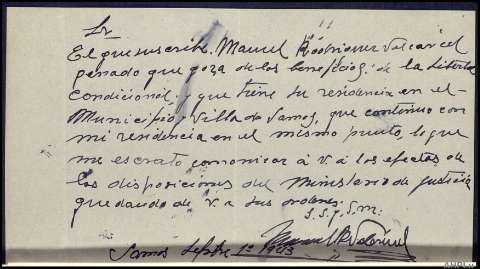 Sr
El que suscribe. Manuel Rodriguez Valcarcel
penado que goza de los beneficios de la Liberta
Condicional, y que tiene su residencia en el
Municipio, Villa de Samos, que continuo con
mi residencia en el mismo punto, lo que
me es grato comonicar a V. a los efectos de
las disposiciones del Ministerio de Justicia
quedando de V. a sus ordenes.
S. S. q. S. m.
Samos 1º 1943